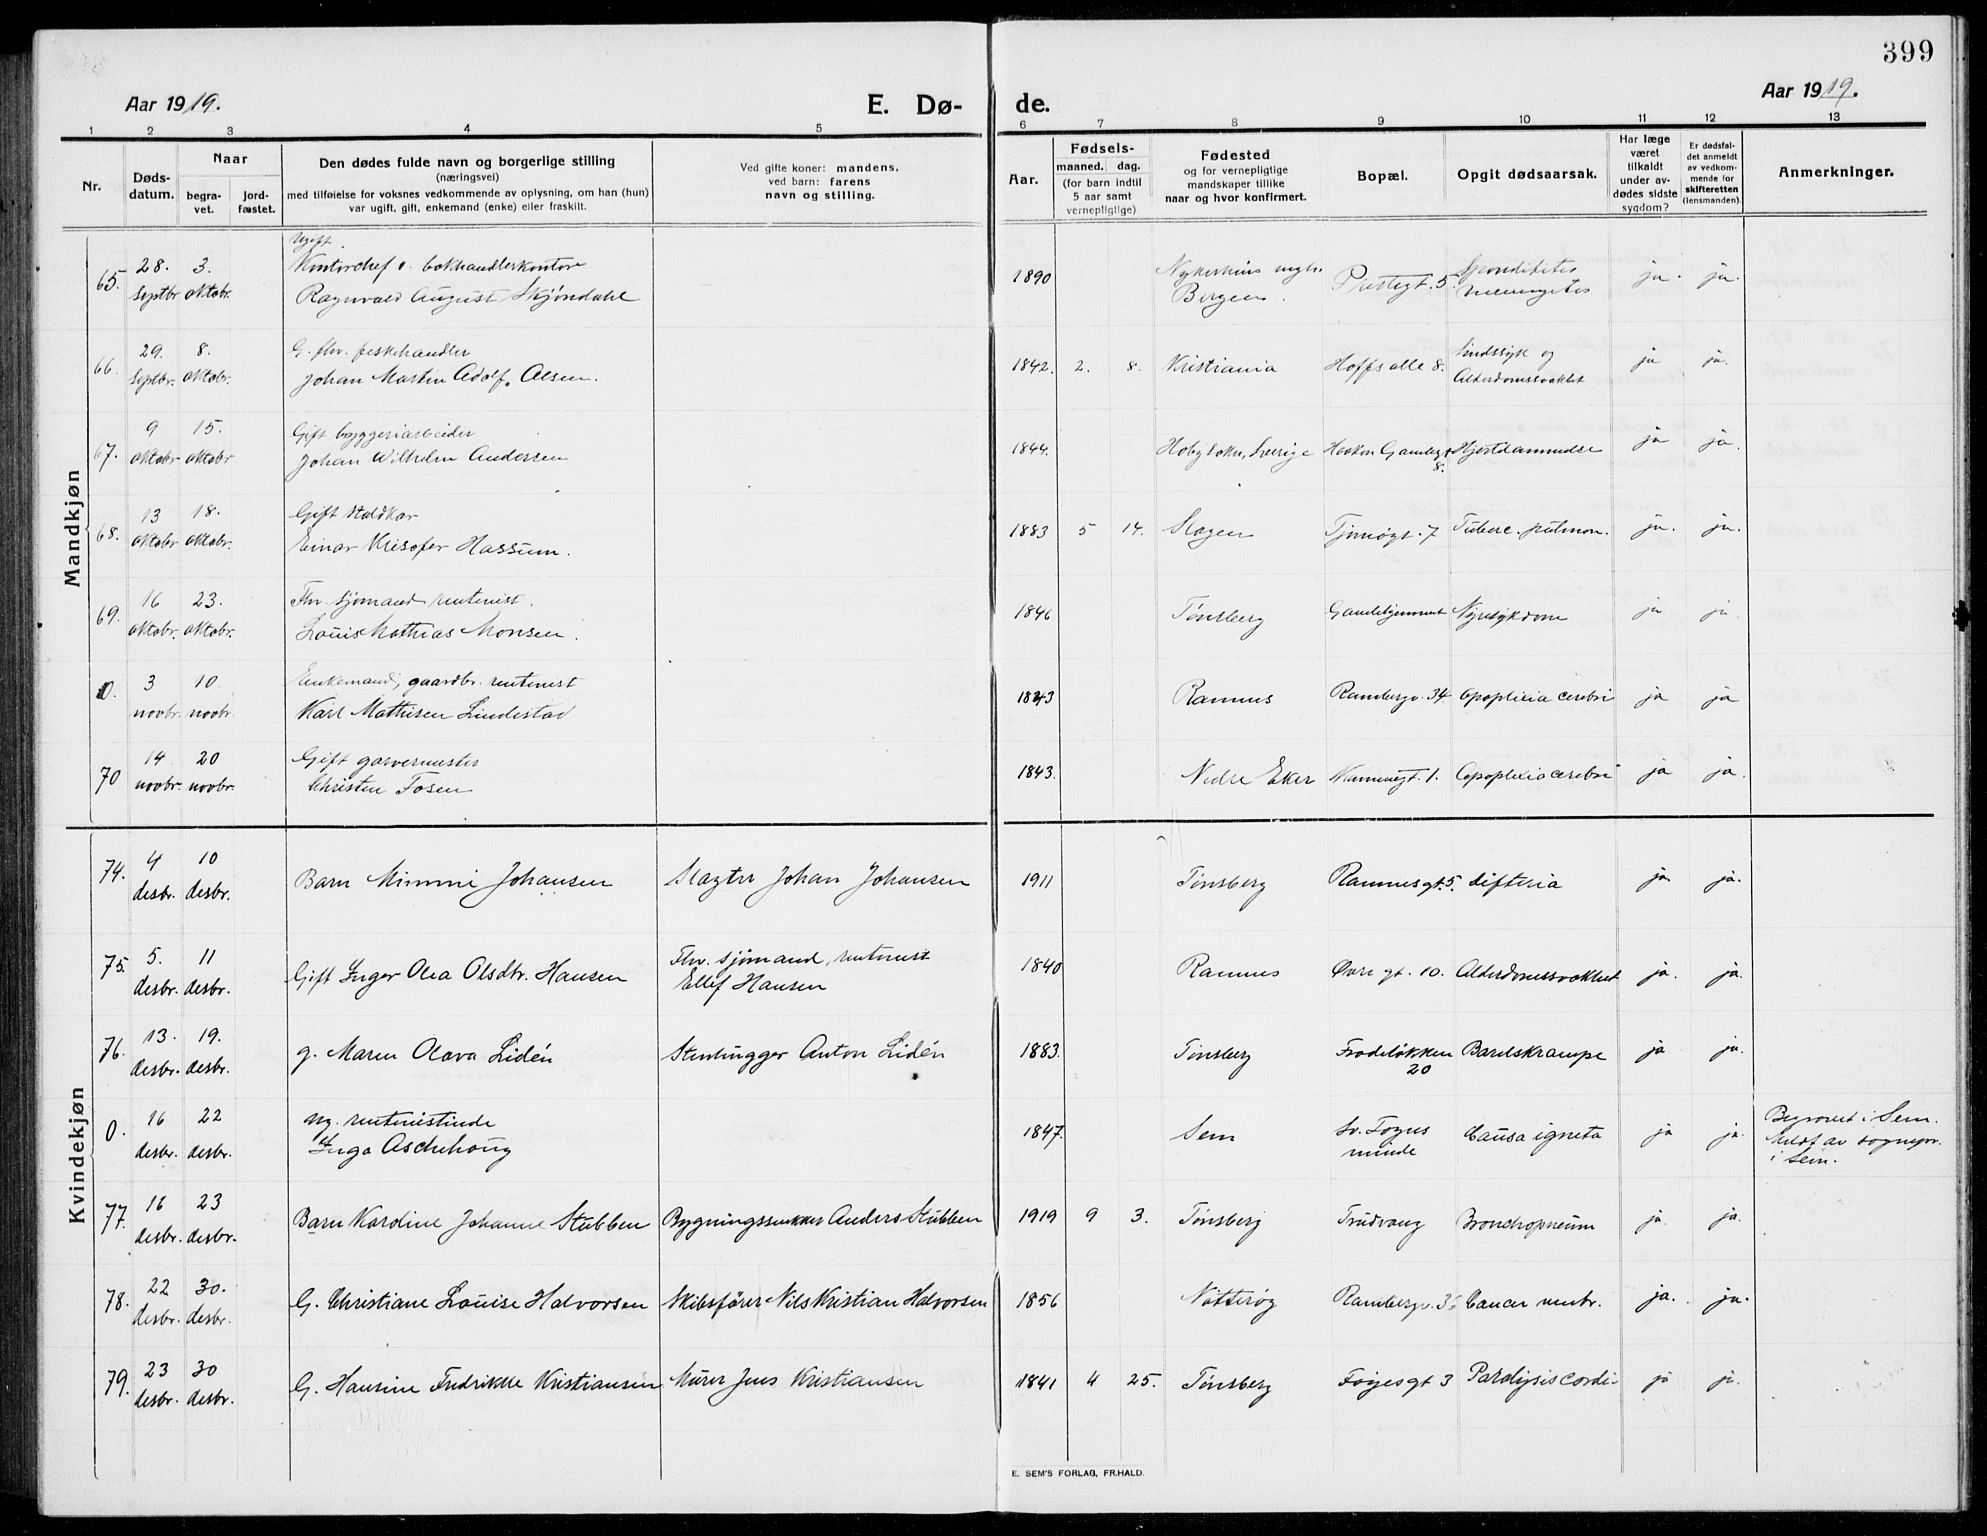 399
Aar 1919.
E. Dø-
de.
Aar 1919.
1 2 3 4 5 6 7 8 9 10 11 12 13
Nr.
Døds-
datum.
Naar
begra-
vet.
jord-
fæstet.
Den dødes fulde navn og borgerlige stilling
(næringsvei)
med tilføielse for voksnes vedkommende av oplysning, om han (hun)
var ugift, gift, enkemand (enke) eller fraskilt.
Ved gifte koner: mandens,
ved barn: farens
navn og stilling.
Fødsels-
Aar.
maaned. dag.
(for barn indtil
5 aar samt
vernepligtige)
Fødested
og for vernepligtige
mandskaper tillike
naar og hvor konfirmert.
Bopæl.
Opgit dødsaarsak.
Har læge
været
tilkaldt
under av-
dødes sidste
sygdom?
Er dødsfal-
det anmeldt
av vedkom-
mende for
skifteretten
(lensmanden).
Anmerkninger.
Mandkjøn
65. 28. Septbr. 3. oktobr.
Ugift.
Kontorchef v. bokhandlerkontor
Ragnvald August Skjøndahl
1890
Bergen.
Prestegt. 5
ja. ja.
66. 29. Septbr. 8. oktobr.
G. fhv. fiskehandler
Johan Martin Adolf Olsen.
1842. 2. 8. Kristiania Hoffs alle 8.
Sindssyk og
Alderdomssvakhet
ja ja.
67. 9 oktobr 15. oktobr
Gift bryggeriarbeider
Johan Wilhelm Andersen
1844. Hoby sokn, Sverige Haakon Gamlesgt 8. Hjertelammelse ja ja.
68. 13 oktobr 18. oktobr.
Gift staldkar
Einar Krisofer Hassum.
1883 5 14. Slagen Tjømøgt. 7 Tuberc. pulmon. ja. ja.
69. 16 oktobr. 23. oktobr.
Fhv. sjømand rentenist.
Louis Mathias Monsen.
1846 Tønsberg Gamlehjemmet Nyresykdom ja ja
0. 3 novbr. 10 novbr.
Enkemand, gaardbr. rentenist
Karl Mathisen Lindestad
1843 Ramnes Rambergv. 34 Apoplexia cerebri ja ja
70 14 novbr. 20 novbr.
Gift garvermester
Christen Fosen
1843. Nedre Eker Apoplexia cerebri ja ja.
Kvindekjøn
74. 4 desbr. 10 desbr. Barn Mimmi Johansen Slagter Johan Johansen 1911 Tønsberg Ramnesgt. 5. difteria ja ja.
75. 5. desbr. 11 desbr. Gift Inger Olea Olsdtr. Hansen
Fhv. sjømand, rentenist
Ellef Hansen
1840 Ramnes Øvre gt. 10. Alderdomssvakhet ja. ja.
76. 13. desbr. 19. desbr. g. Maren Olava Lidén Stenhugger Anton Lidén 1883. Tønsberg Frodeløkken 20 Barselskrampe ja ja.
0. 16 desbr. 22 desbr.
ug. rentenistinde
Inga Aschehoug
1847. Sem
Sv. Foyns
minde
Causa ignota ja ja.
Begravet i Sem.
Meldt av sognepr.
i Sem.
77. 16 desbr. 23 desbr. Barn Karoline Johanne Stubben Bygningssnekker Anders Stubben 1919 9 3. Tønsberg Trudvang Bronchopneum ja. ja.
78. 22 desbr. 30. desbr. G. Christiane Louise Halvorsen Skibsfører Nils Kristian Halvorsen 1856 Nøtterøy Rambergv. Cancer ventr. ja. ja.
79. 23 desbr. 30 desbr. G. Hansine Fredrikke Kristiansen Murer Jens Kristiansen 1841 4 25. Tønsberg Føyesgt 3 Paralysis cordis ja ja.
E. SEM'S FORLAG, FR.HALD.